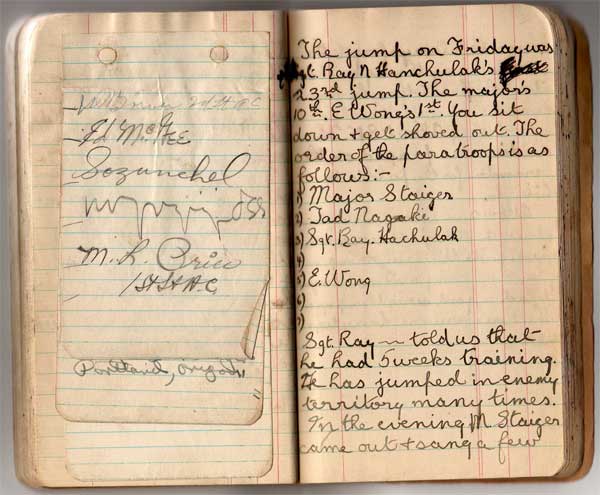 2nd Lt. A.C.
Ed McGee
M. L.
1st Lt. A.C.
Portland, Oregon
The jump on Friday was
Sgt. Ray N Hanchulak's
23rd jump. The major's
10th. E Wong's 1st. You sit
down & get shoved out. The
order of the paratroops is as
follows:-
1) Major Staiger
2) Tad Nagaki
3) Sgt. Ray. Hachulak
4)
5) E. Wong
6)
7)
Sgt. Ray ~ told us that
he had 5 weeks training.
He has jumped in enemy
territory many times.
In the evening M. Staiger
came out & sang a few